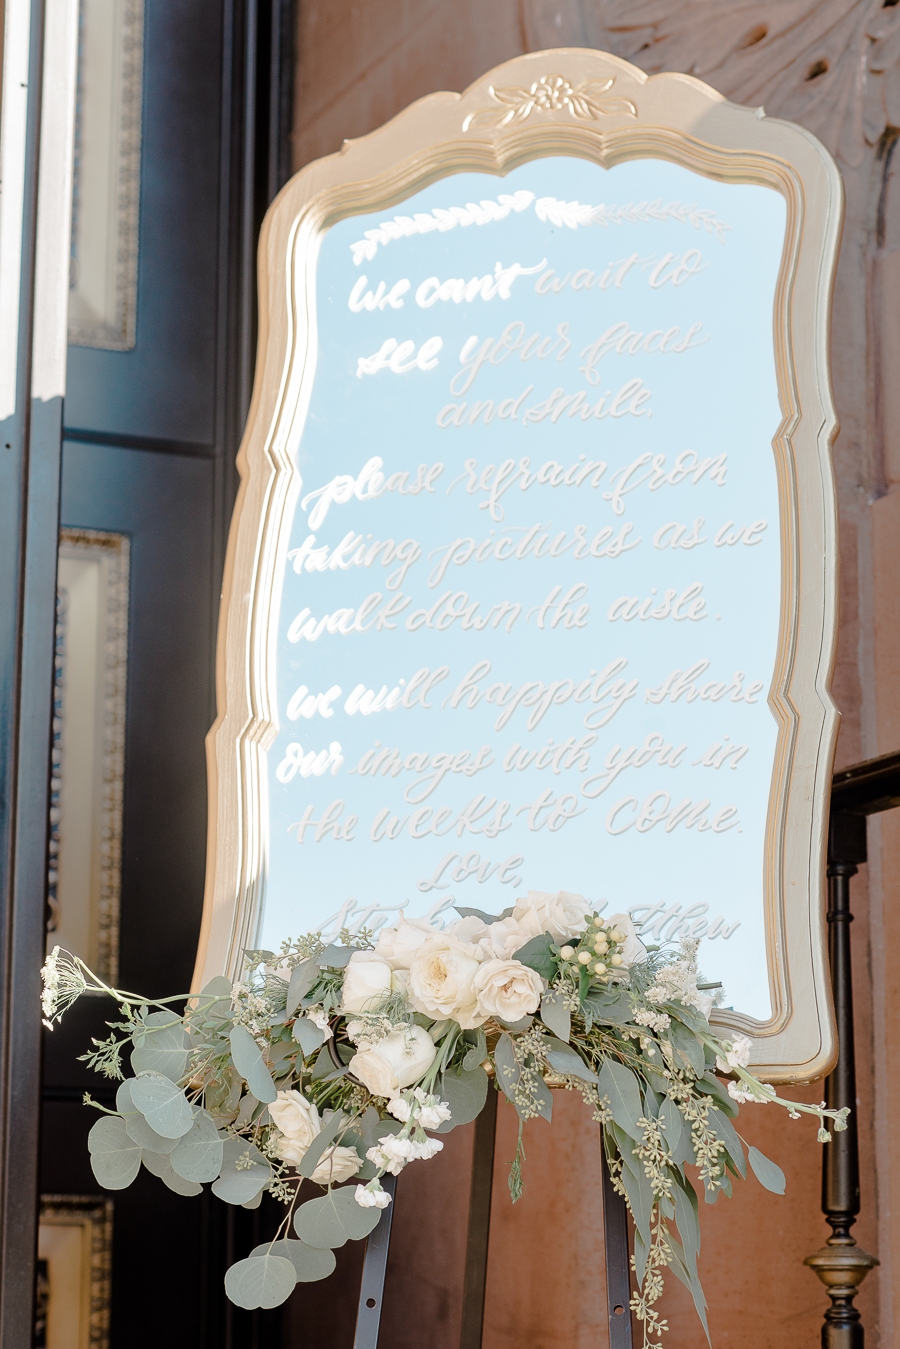 we can't wait to
see your faces
and smile.
please refrain from
taking pictures as we
walk down the aisle.
we will happily share
our images with you in
the weeks to come.
Love,